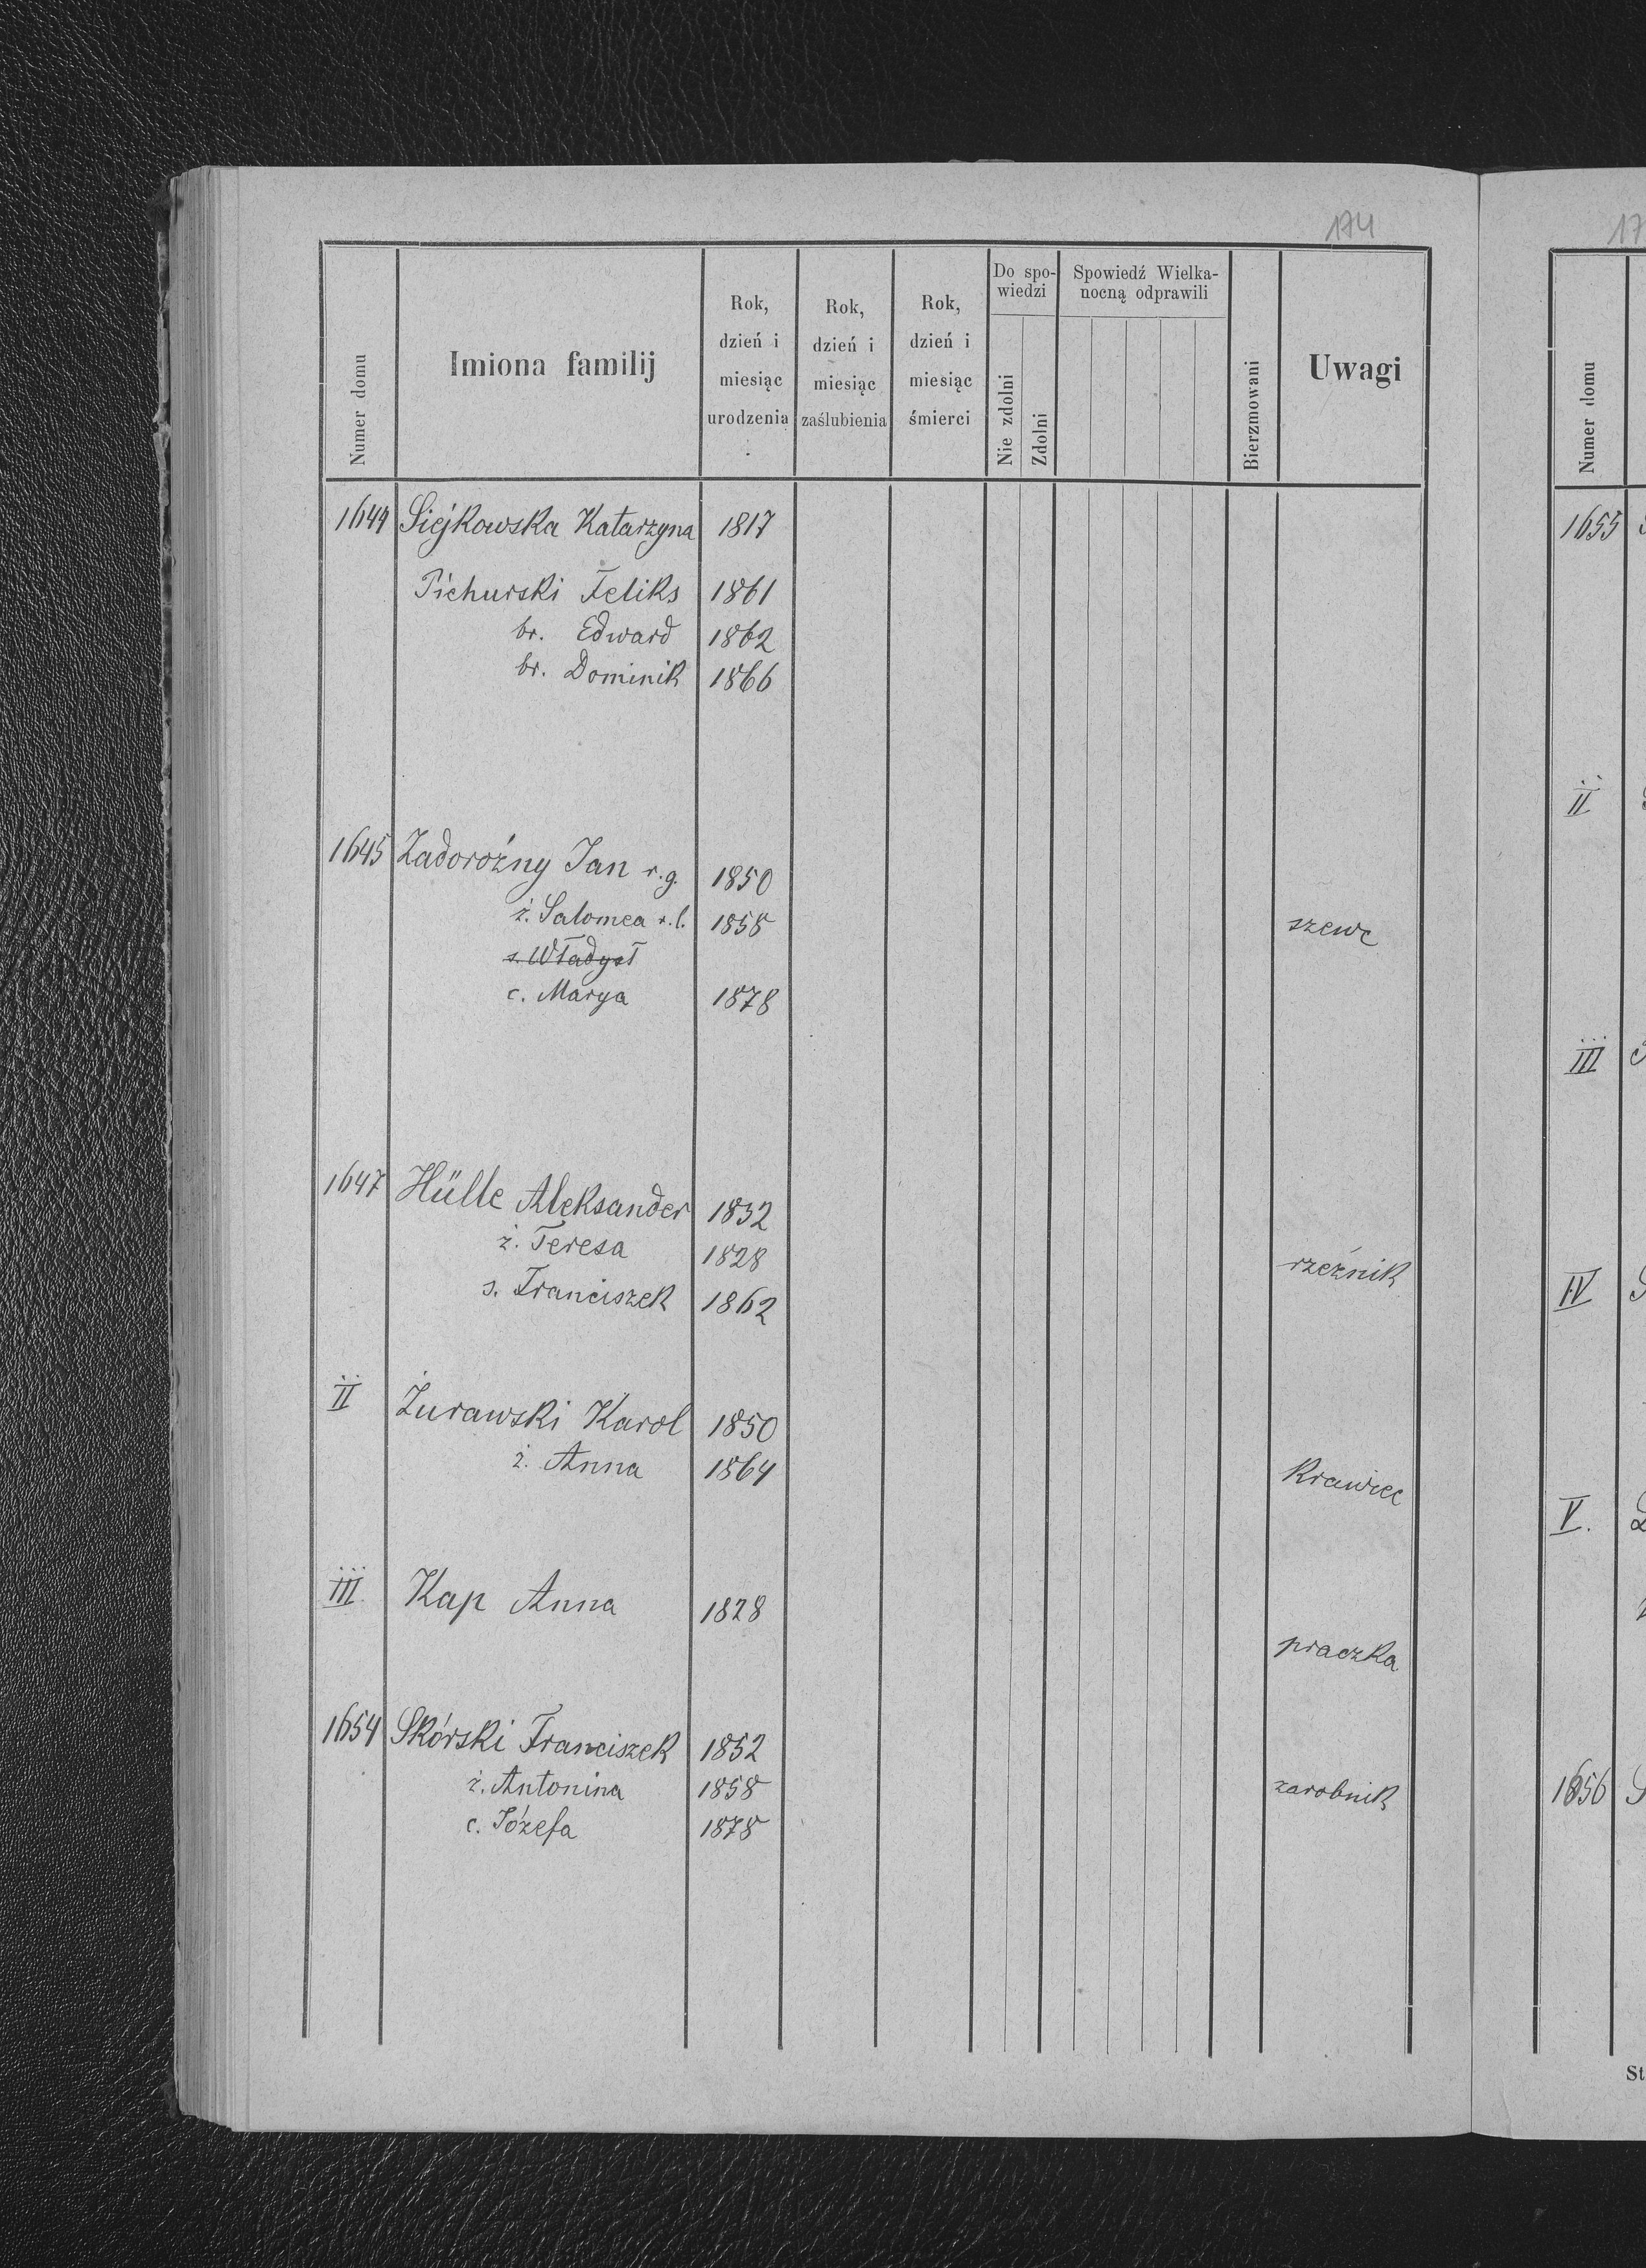 174
Numer domu
Imiona familij
Rok, dzień i miesiąc urodzenia
Rok, dzień i miesiąc zaślubienia
Rok, dzień i miesiąc śmierci
Do spo-
wiedzi
Nie zdolni
Zdolni
Spowiedź Wielka-
nocną odprawili
Bierzmowani
Uwagi
1644 Siejkowska Katarzyna 1817
Pichurski Feliks 1861
br. Edward 1862
br. Dominik 1866
1645 Zadorożny Jan r.g. 1850
ż. Salomea r.l. 1858 szewc
s. Władysł
c. Marya 1878
1647 Hülle Aleksander 1832
ż. Teresa 1828 rzeźnik
s. Franciszek 1862
II Żurawski Karol 1850
ż. Anna 1864 Krawiec
III. Kap Anna 1828
praczka
1654 Skórski Franciszek 1852
ż. Antonina 1858 zarobnik
c. Józefa 1878
17
Numer domu
1655
II
III
IV
V.
1656
St